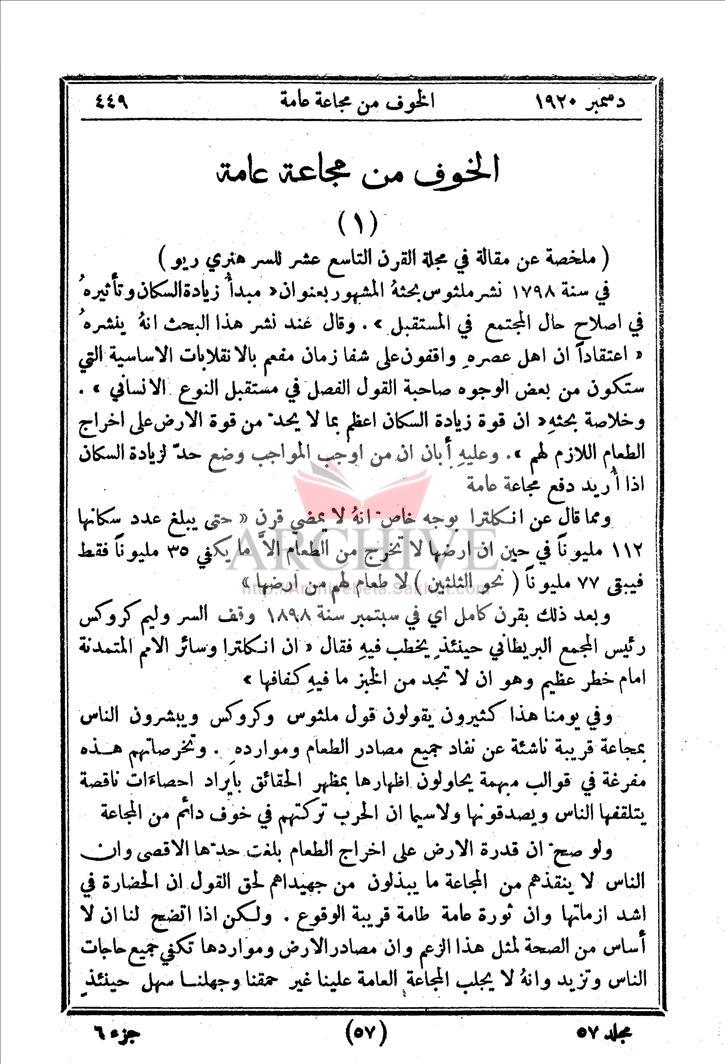 دسمبر ١٩٢٠ الخوف من مجاعة عامة ٤٤٩
الخوف من مجاعة عامة
(١)
( ملخصة عن مقالة في مجلة القرن التاسع عشر للسر هنري ريو )
في سنة ١٧٩٨ نشر ملثوس بحثهُ المشهور بعنوان « مبدأُ زيادة السكان وتأثيرهُ
في اصلاح حال المجتمع في المستقبل » . وقال عند نشر هذا البحث انهُ ينشرهُ
« اعتقاداً ان اهل عصرهِ واقفون على شفا زمان مفعم بالانقلابات الاساسية التي
ستكون من بعض الوجوه صاحبة القول الفصل في مستقبل النوع الانساني » .
وخلاصة بحثهِ « ان قوة زيادة السكان اعظم بما لا يحدّ من قوة الارض على اخراج
الطعام اللازم لهم » . وعليهِ أبان ان من اوجب المواجب وضع حدّ لزيادة السكان
اذا أُريد دفع مجاعة عامة
ومما قال عن انكلترا بوجه خاصّ انهُ لا يمضي قرن « حتى يبلغ عدد سكانها
١١٢ مليوناً في حين ان ارضها لا تخرج من الطعام الاَّ ما يكفي ٣٥ مليوناً فقط
فيبقى ٧٧ مليوناً ( نحو الثلثين ) لا طعام لهم من ارضها »
وبعد ذلك بقرن كامل اي في سبتمبر سنة ١٨٩٨ وقف السر وليم كروكس
رئيس المجمع البريطاني حينئذٍ يخطب فيهِ فقال « ان انكلترا وسائر الامم المتمدنة
امام خطر عظيم وهو ان لا تجد من الخبز ما فيهِ كفافها »
وفي يومنا هذا كثيرون يقولون قول ملثوس وكروكس ويبشرون الناس
بمجاعة قريبة ناشئة عن نفاد جميع مصادر الطعام وموارده . وتخرصاتهم هـذه
مفرغة في قوالب مبهمة يحاولون اظهارها بمظهر الحقائق بايراد احصاءات ناقصة
يتلقفها الناس ويصدقونها ولاسيما ان الحرب تركتهم في خوف دائم من المجاعة
ولو صحّ ان قدرة الارض على اخراج الطعام بلغت حدّها الاقصى وان
الناس لا ينقذهم من المجاعة ما يبذلون من جهيداهم لحق القول ان الحضارة في
اشد ازماتها وان ثورة عامة طامة قريبة الوقوع . ولكن اذا اتضح لنا ان لا
أساس من الصحة لمثل هذا الزعم وان مصادر الارض ومواردها تكفي جميع حاجات
الناس وتزيد وانهُ لا يجلب المجاعة العامة علينا غير حمقنا وجهلنا سهل حينئذٍ
مجلد ٥٧ (٥٧) جزء ٦
ARCHIVE